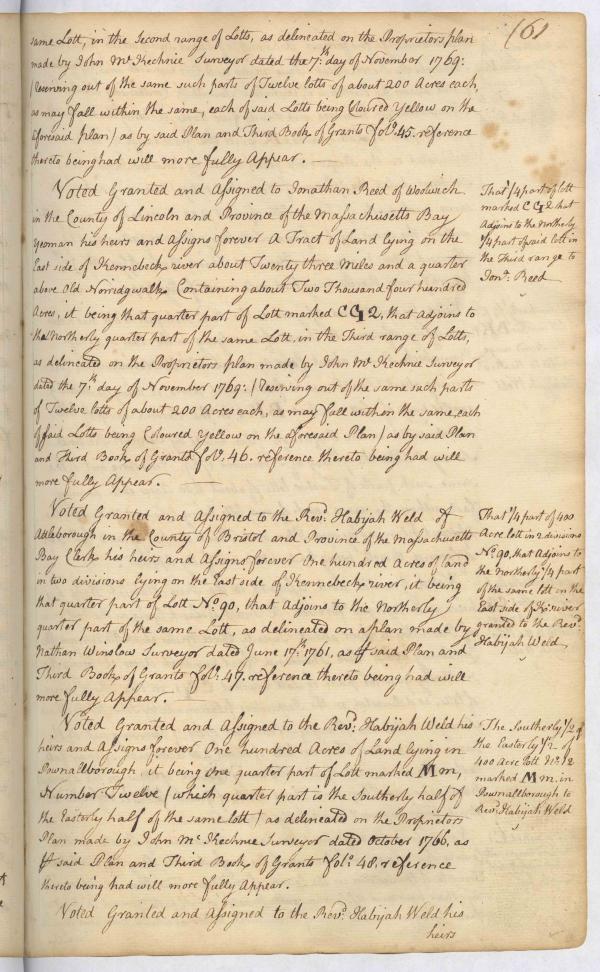 161
same Lott, in the Second range of Lotts, as delineated on the Proprietors plan
made by John Mc.Kechnie Surveyor dated the 7.th day of November 1769:
(Reserving out of the same such parts of Twelve lotts of about 200 Acres each,
as may fall within the same, each of said Lotts being Coloured Yellow on the
aforesaid plan) as by said Plan and Third Book of Grants fol.o 45. reference
thereto being had will more fully Appear. —
Voted Granted and Assigned to Jonathan Reed of Woolwich
in the County of Lincoln and Province of the Massachusetts Bay
Yeoman his heirs and Assigns forever A Tract of Land lying on the
East side of Kennebeck river about Twenty three Miles and a quarter
above Old Norridgwalk, Containing about Two Thousand four hundred
Acres, it being that quarter part of Lott marked CG 2, that adjoins to
the Northerly quarter part of the same Lott, in the Third range of Lotts,
as delineated on the Proprietors plan made by John Mc.Kechnie Surveyor
dated the 7.th day of November 1769: (Reserving out of the same such parts
of Twelve lotts of about 200 Acres each, as may fall within the same, each
of said Lotts being Coloured Yellow on the aforesaid Plan) as by said Plan
and Third Book of Grants fol.o 46. reference thereto being had will
more fully Appear. —
That 1/4 part of lott
marked CG 2 that
adjoins to the Northerly
1/4 part of said lott in
the Third range to
Jon.a Reed
Voted Granted and Assigned to the Rev.d Habijah Weld of
Attleborough in the County of Bristol and Province of the Massachusetts
Bay Clerk his heirs and Assigns forever One hundred Acres of land
in two divisions lying on the East side of Kennebeck river, it being
that quarter part of Lott No. 90, that adjoins to the Northerly
quarter part of the same Lott, as delineated on a plan made by
Nathan Winslow Surveyor dated June 17.th 1761, as by said Plan and
Third Book of Grants fol.o 47. reference thereto being had will
more fully Appear. —
That 1/4 part of 400
Acre lott in 2 divisions
No. 90, that adjoins to
the Northerly 1/4 part
of the same lott on the
East side of K: river
granted to the Rev.d
Habijah Weld
Voted Granted and Assigned to the Rev.d Habijah Weld his
heirs and Assigns forever One hundred Acres of Land lying in
Pownallborough, it being one quarter part of Lott marked Mm,
Number Twelve (which quarter part is the Southerly half of
the Easterly half of the same lott) as delineated on the Proprietors
Plan made by John Mc Kechnie Surveyor dated October 1766, as
by said Plan and Third Book of Grants fol.o 48. reference
thereto being had will more fully Appear.
The Southerly 1/2 of
the Easterly 1/2 of
400 Acre lott No. 12
marked Mm. in
Pownallborough to
Rev.d Habijah Weld
Voted Granted and Assigned to the Rev.d Habijah Weld his
heirs